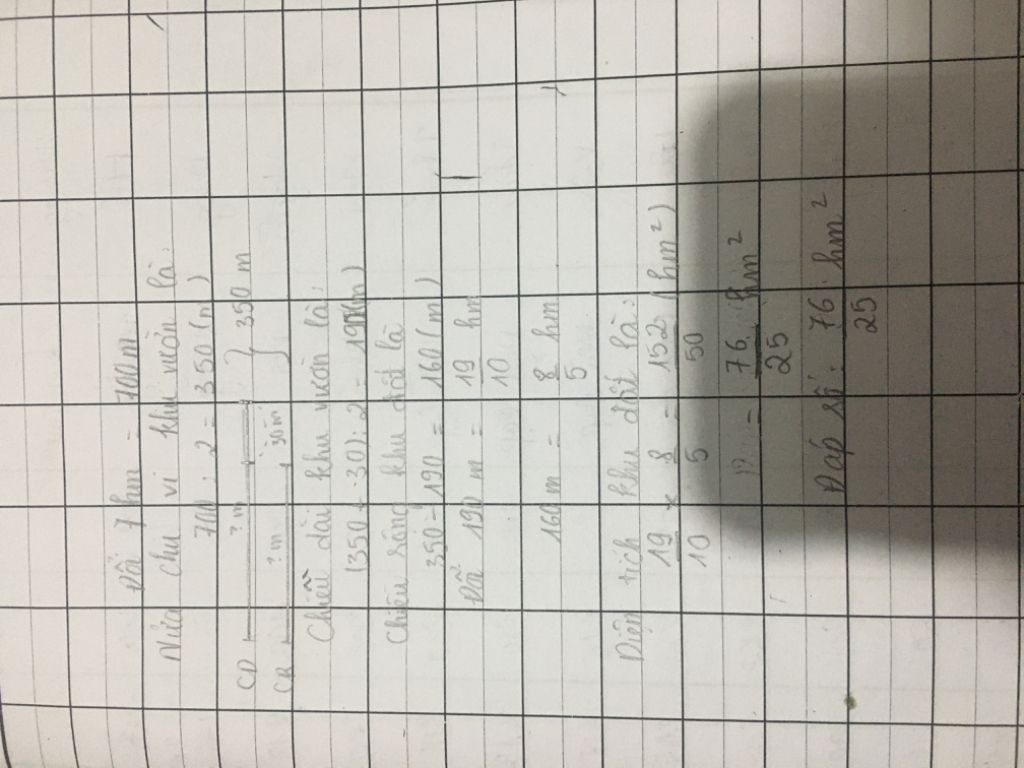 Đổi 7 hm = 700 m
Nửa chu vi khu vườn là:
700 : 2 = 350 (m)
CD ? m
} 350 m
CR ? m 30 m
Chiều dài khu vườn là:
(350 + 30) : 2 = 190 (m)
Chiều rộng khu đất là
350 - 190 = 160 (m)
Đổi 190 m = 19/10 hm
160 m = 8/5 hm
Diện tích khu đất là:
19/10 × 8/5 = 152/50 (hm²)
= 76/25 hm²
Đáp số: 76/25 hm²